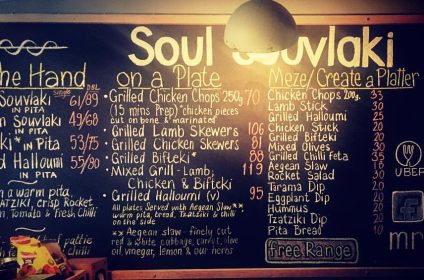 Soul Souvlaki
the Hand
Single DBL
Souvlaki 61/89
IN PITA
Souvlaki 49/68
IN PITA
* in Pita 53/75
d Halloumi 55/80
IN PITA
n a warm pita,
TZATZIKI, crisp Rocket
on Tomato & Fresh Chilli
on a Plate
• Grilled Chicken Chops 250g 70
(15 mins Prep) *chicken pieces
cut on bone & marinated
• Grilled Lamb Skewers 106
• Grilled Chicken Skewers 81
• Grilled Bifteki* 88
• Mixed Grill - Lamb, 119
Chicken & Bifteki
• Grilled Halloumi (v) 95
All plates Served with Aegean Slaw**
warm pita, bread, Tzatziki & chilli
on the side
** Aegean slaw - finely cut
red & white, cabbage, carrot, olive
oil, vinegar, lemon & our herbs
Meze/Create a Platter
Chicken Chops 200g. 33
Lamb Stick 30
Grilled Halloumi 25
Chicken Stick 20
Grilled Bifteki 20
Mixed Olives 20
Grilled Chilli feta 35
Aegean Slaw 15
Rocket Salad 30
Tarama Dip 20
Eggplant Dip 20
Hummus 20
Tzatziki Dip 20
Pita Bread 10
free Range
UBER
f